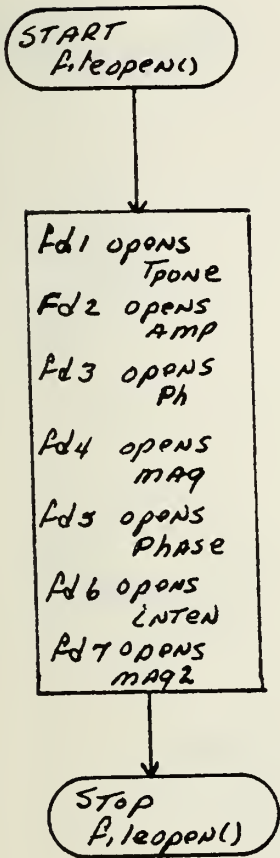 START
fileopen()
fd1 opens
Tpone
Fd2 opens
Amp
fd3 opens
Ph
fd4 opens
mag
fd5 opens
Phase
fd6 opens
inten
fd7 opens
mag2
STOP
fileopen()